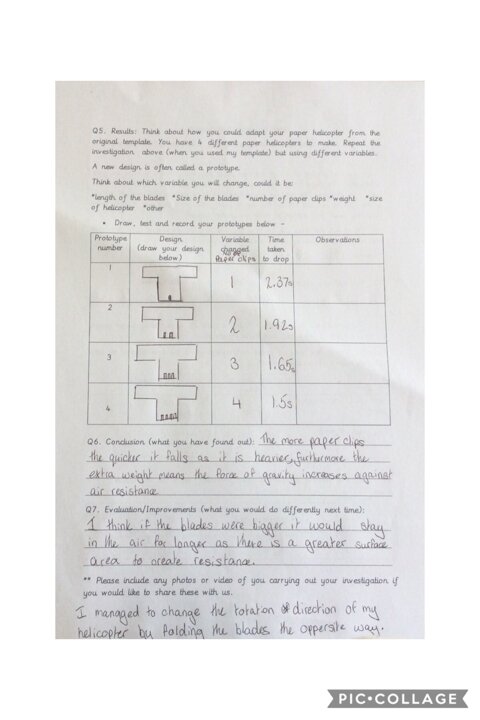 Q5. Results: Think about how you could adapt your paper helicopter from the
original template. You have 4 different paper helicopters to make. Repeat the
investigation above (when you used my template) but using different variables.
A new design is often called a prototype.
Think about which variable you will change, could it be:
*length of the blades *Size of the blades *number of paper clips *weight *size
of helicopter *other
• Draw, test and record your prototypes below -
Prototype number Design (draw your design below) Variable changed No of Paper clips Time taken to drop Observations
1 1 2.37s
2 2 1.92s
3 3 1.65s
4 4 1.5s
Q6. Conclusion (what you have found out): The more paper clips
the quicker it falls as it is heavier, furthermore the
extra weight means the force of gravity increases against
air resistance
Q7. Evaluation/Improvements (what you would do differently next time):
I think if the blades were bigger it would stay
in the air for longer as there is a greater surface
area to create resistance.
** Please include any photos or video of you carrying out your investigation if
you would like to share these with us.
I managed to change the rotation direction of my
helicopter by folding the blades the oppersite way.
PIC•COLLAGE